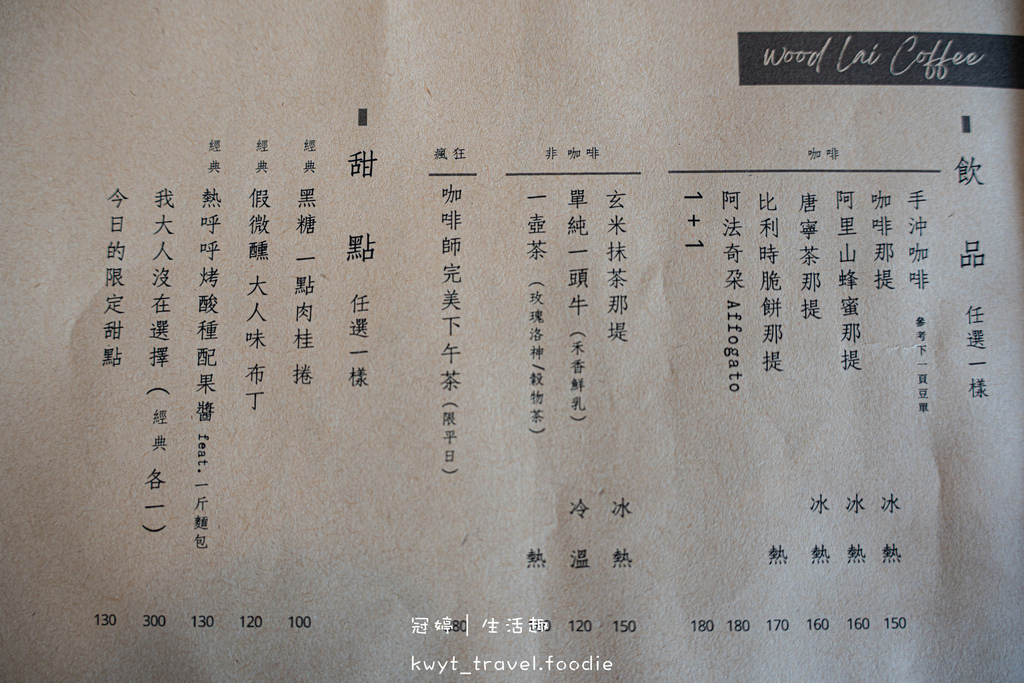 wood Lai Coffee
飲品 任選一樣
咖啡
手沖咖啡 參考下一頁豆單
咖啡那提 冰 熱 150
阿里山蜂蜜那提 冰 熱 160
唐寧茶那提 冰 熱 160
比利時脆餅那提 熱 170
阿法奇朶 Affogato 180
1+1 180
非咖啡
玄米抹茶那堤 冰 熱 150
單純一頭牛(禾香鮮乳) 冷 溫 120
一壺茶(玫瑰洛神/穀物茶) 熱
瘋狂
咖啡師完美下午茶(限平日)
甜點 任選一樣
經典 黑糖一點肉桂捲 100
經典 假微醺 大人味 布丁 120
經典 熱呼呼烤酸種配果醬 feat.一斤麵包 130
我大人沒在選擇(經典 各一) 300
今日的限定甜點 130
冠婷|生活趣
kwyt_travel.foodie